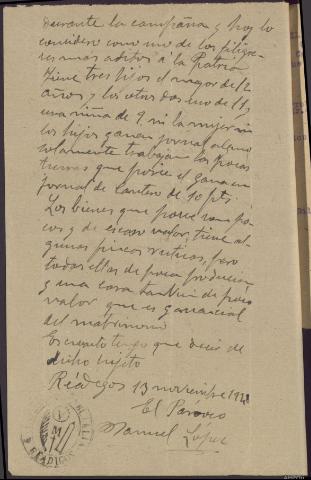 durante la campaña y hoy lo
considero como uno de los feligre-
ses mas aditos a la Patria
Tiene tres hijos el mayor de 12
años y los otros dos uno de 11 y
una niña de 9, ni la mujer ni
los hijos ganan jornal alguno
solamente trabajan las pocas
tierras que posee el gana un
jornal de cantero de 10 pts.
Los bienes que posee son po-
cos y de escaso valor, tiene al-
gunas fincas rusticas, pero
todas ellas de poca produccion
y una casa tambien de poco
valor que es ganancial
del matrimonio
Es cuanto tengo que decir de
dicho sujeto
Réádegos 13 noviembre
El Párroco
Manuel López